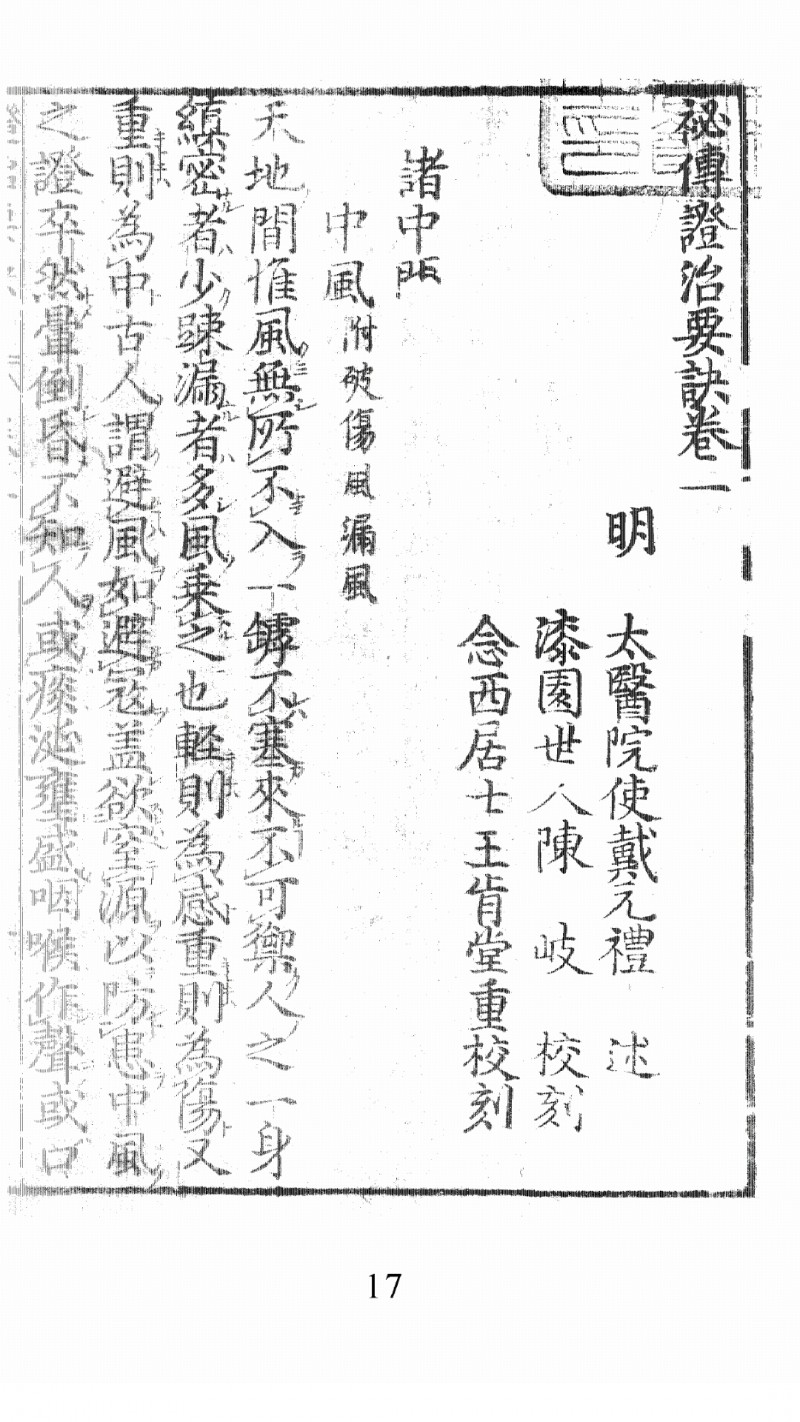 祕傳證治要訣卷一
明　太醫院使戴元禮　述
漆園世人陳　岐　校刻
念西居士王肯堂重校刻
諸中門
中風附破傷風漏風
天地間惟風無所不入一罅不塞來不可禦人之一身
縝密者少踈漏者多風乗之也軽則為感重則為傷又
重則為中古人謂避風如避寇盖欲窒源以防患中風
之證卒然暈倒昏不知人或痰涎壅盛咽喉作聲或口
17